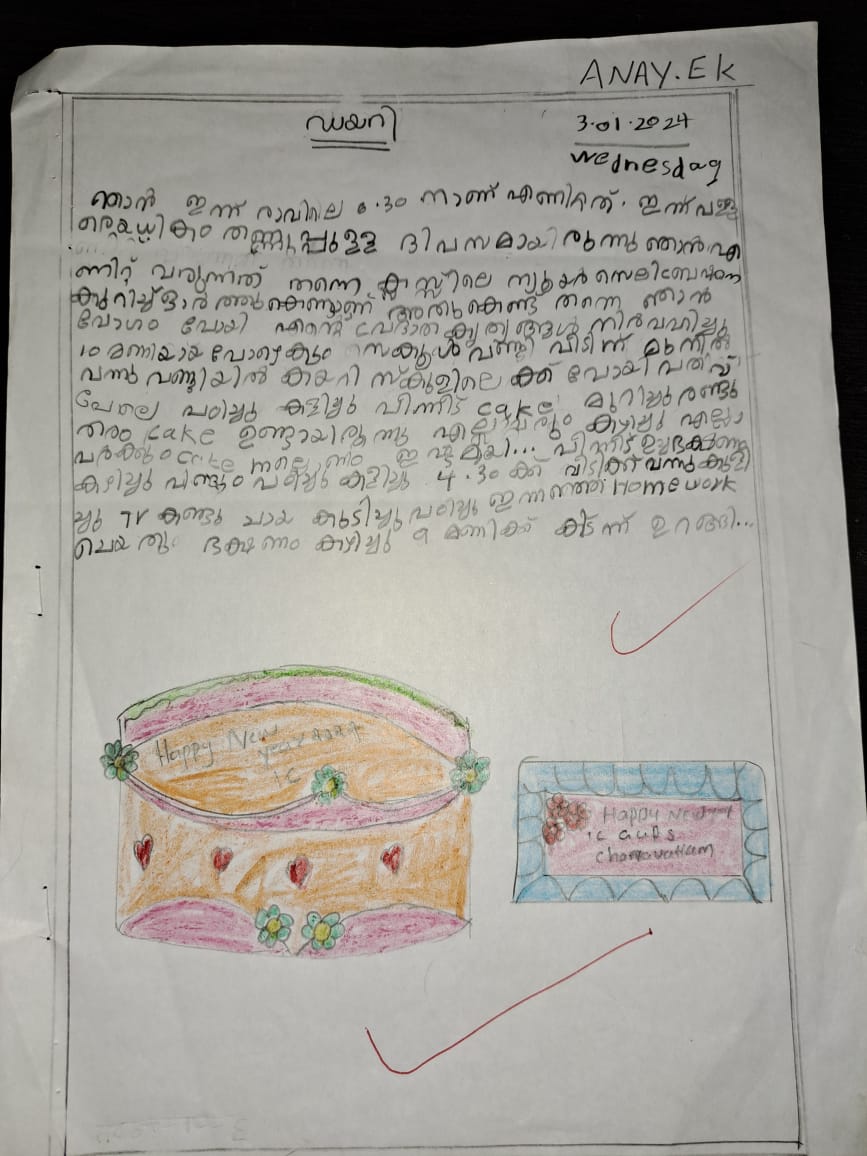 ANAY.EK
ഡയറി
3.01.2024
wednesday
ഞാൻ ഇന്ന് രാവിലെ 6.30 നാണ് എണിറ്റത്. ഇന്ന് വള
രെയധികം തണുപ്പുള്ള ദിപസമായിരുന്നു ഞാൻ എ
ണിറ്റ് വരുന്നത് തന്നെ ക്ലസ്സിലെ ന്യൂയർ സെലിബ്രേഷനെ
കുറിച്ച് ഓർത്തുകൊണ്ടാണ് അതുകൊണ്ട് തന്നെ ഞാൻ
വേഗം പോയി എന്റെ പ്രഭാത കൃത്യങ്ങൾ നിർവഹിച്ചു
10 മണിയായപോഴെകും സ്കൂൾ വണ്ടി വീടിന് മുന്നിൽ
വന്നു വണ്ടിയിൽ കയറി സ്കൂളിലെക്ക് പോയി പതിവ്
പോലെ പഠിച്ചു കളിച്ചു പിന്നീട് cake മുറിച്ചു രണ്ടു
തരം cake ഉണ്ടായിരുന്നു എല്ലാവരും കഴിച്ചു എല്ലാ
വർക്കും cake നല്ലോണം ഇഷ്ടമായി... പിന്നീട് ഉച്ചഭക്ഷണം
കഴിച്ചു വീണ്ടും പഠിച്ചു കളിച്ചു 4.30 ക്ക് വീടിക്ക് വന്നു കുളി
ച്ചു TV കണ്ടു ചായ കുടിച്ചു പഠിച്ചു ഇന്നത്തെ Home work
ചെയതു ഭക്ഷണം കഴിച്ചു 9 മണിക്ക് കിടന്ന് ഉറങ്ങി...
Happy New
year 2024
1C
Happy New
1C GUPS
Chamravattam